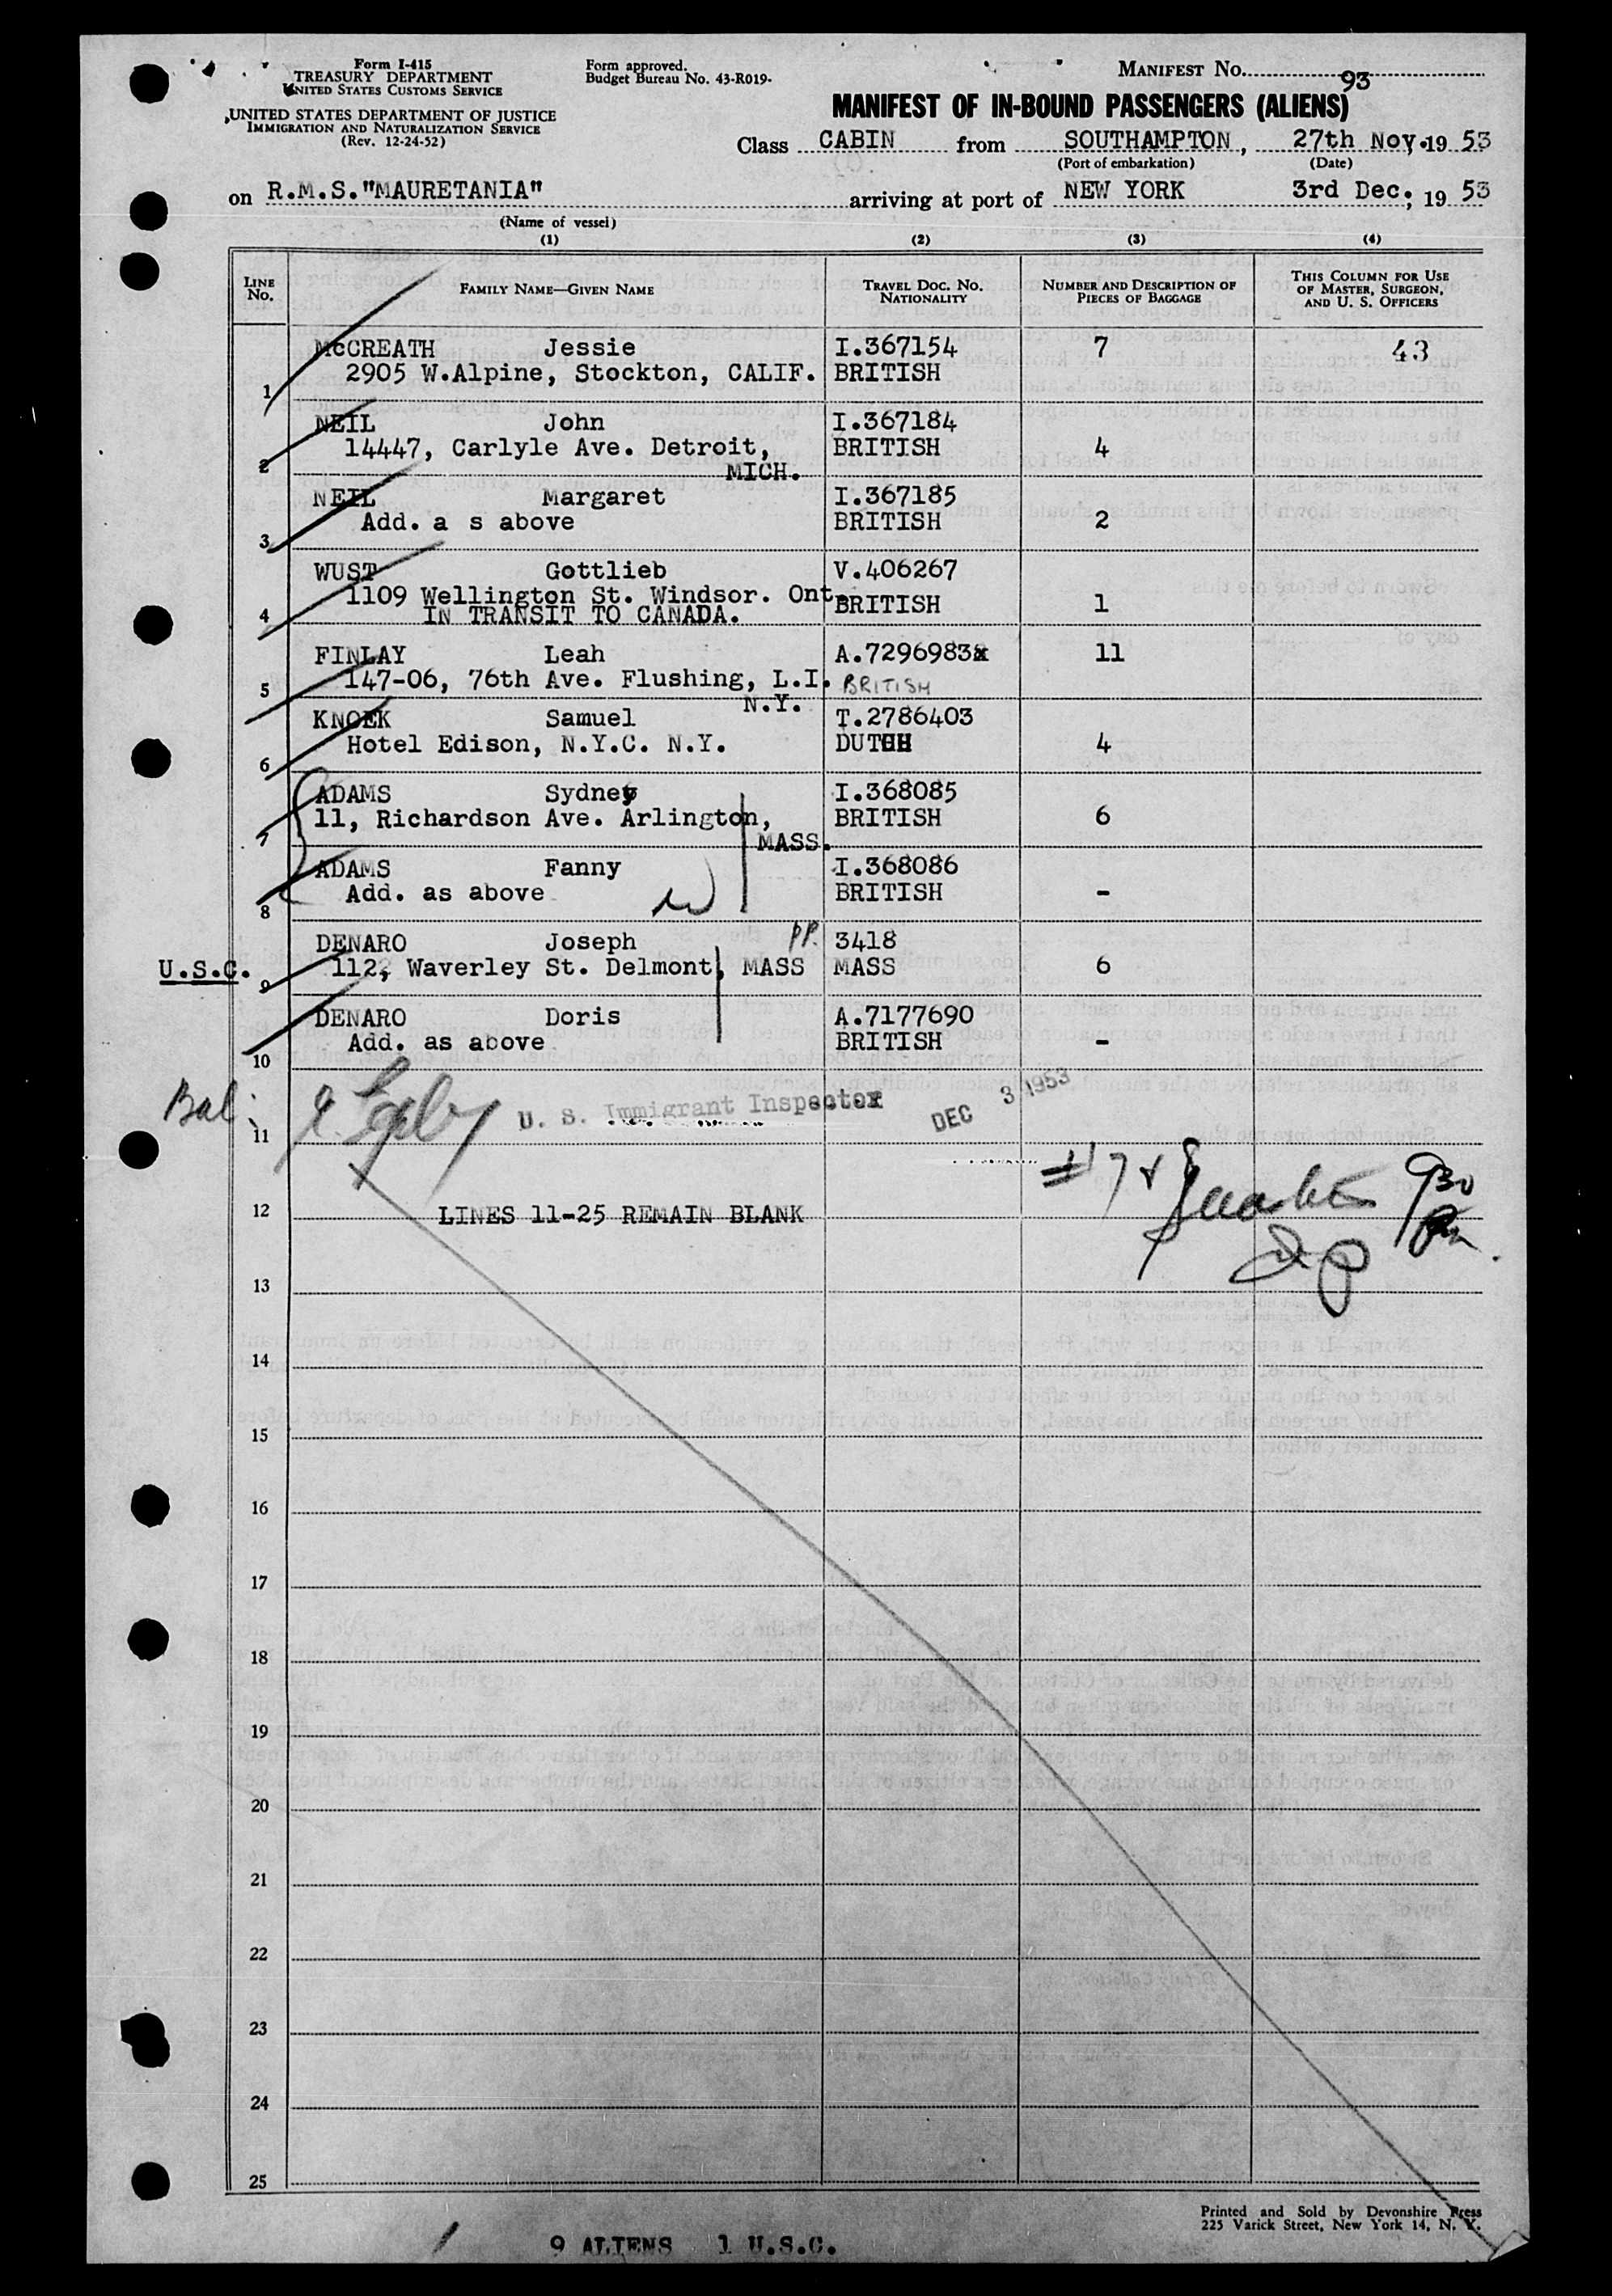 Form I-415
TREASURY DEPARTMENT
UNITED STATES CUSTOMS SERVICE
UNITED STATES DEPARTMENT OF JUSTICE
IMMIGRATION AND NATURALIZATION SERVICE
(Rev. 12-24-52)
Form approved.
Budget Bureau No. 43-R019-
MANIFEST NO. 93
MANIFEST OF IN-BOUND PASSENGERS (ALIENS)
Class CABIN from SOUTHAMPTON, 27th Nov. 19 53
(Port of embarkation) (Date)
on R.M.S."MAURETANIA" arriving at port of NEW YORK 3rd Dec., 19 53
(Name of vessel)
(1) (2) (3) (4)
LINE No. FAMILY NAME—GIVEN NAME TRAVEL DOC. NO. NATIONALITY NUMBER AND DESCRIPTION OF PIECES OF BAGGAGE THIS COLUMN FOR USE OF MASTER, SURGEON, AND U. S. OFFICERS
McCREATH Jessie I.367154 7 43
1 2905 W.Alpine, Stockton, CALIF. BRITISH
NEIL John I.367184
2 14447, Carlyle Ave. Detroit, BRITISH 4
MICH.
NEIL Margaret I.367185
3 Add. a s above BRITISH 2
WUST Gottlieb V.406267
1109 Wellington St. Windsor. Ont. BRITISH 1
4 IN TRANSIT TO CANADA.
FINLAY Leah A.7296983x 11
5 147-06, 76th Ave. Flushing, L.I. BRITISH
N.Y.
KNOEK Samuel T.2786403
6 Hotel Edison, N.Y.C. N.Y. DUTCH 4
ADAMS Sydney I.368085
7 11, Richardson Ave. Arlington, BRITISH 6
MASS.
ADAMS Fanny I.368086
8 Add. as above BRITISH -
DENARO Joseph pp. 3418
U.S.C. 9 112, Waverley St. Delmont, MASS MASS 6
DENARO Doris A.7177690
10 Add. as above BRITISH -
Bal:
U. S. Immigrant Inspector DEC 3 1953
11
#7 & 8
12 LINES 11-25 REMAIN BLANK
13
14
15
16
17
18
19
20
21
22
23
24
25
Printed and Sold by Devonshire Press
225 Varick Street, New York 14, N. Y.
9 ALIENS 1 U.S.C.